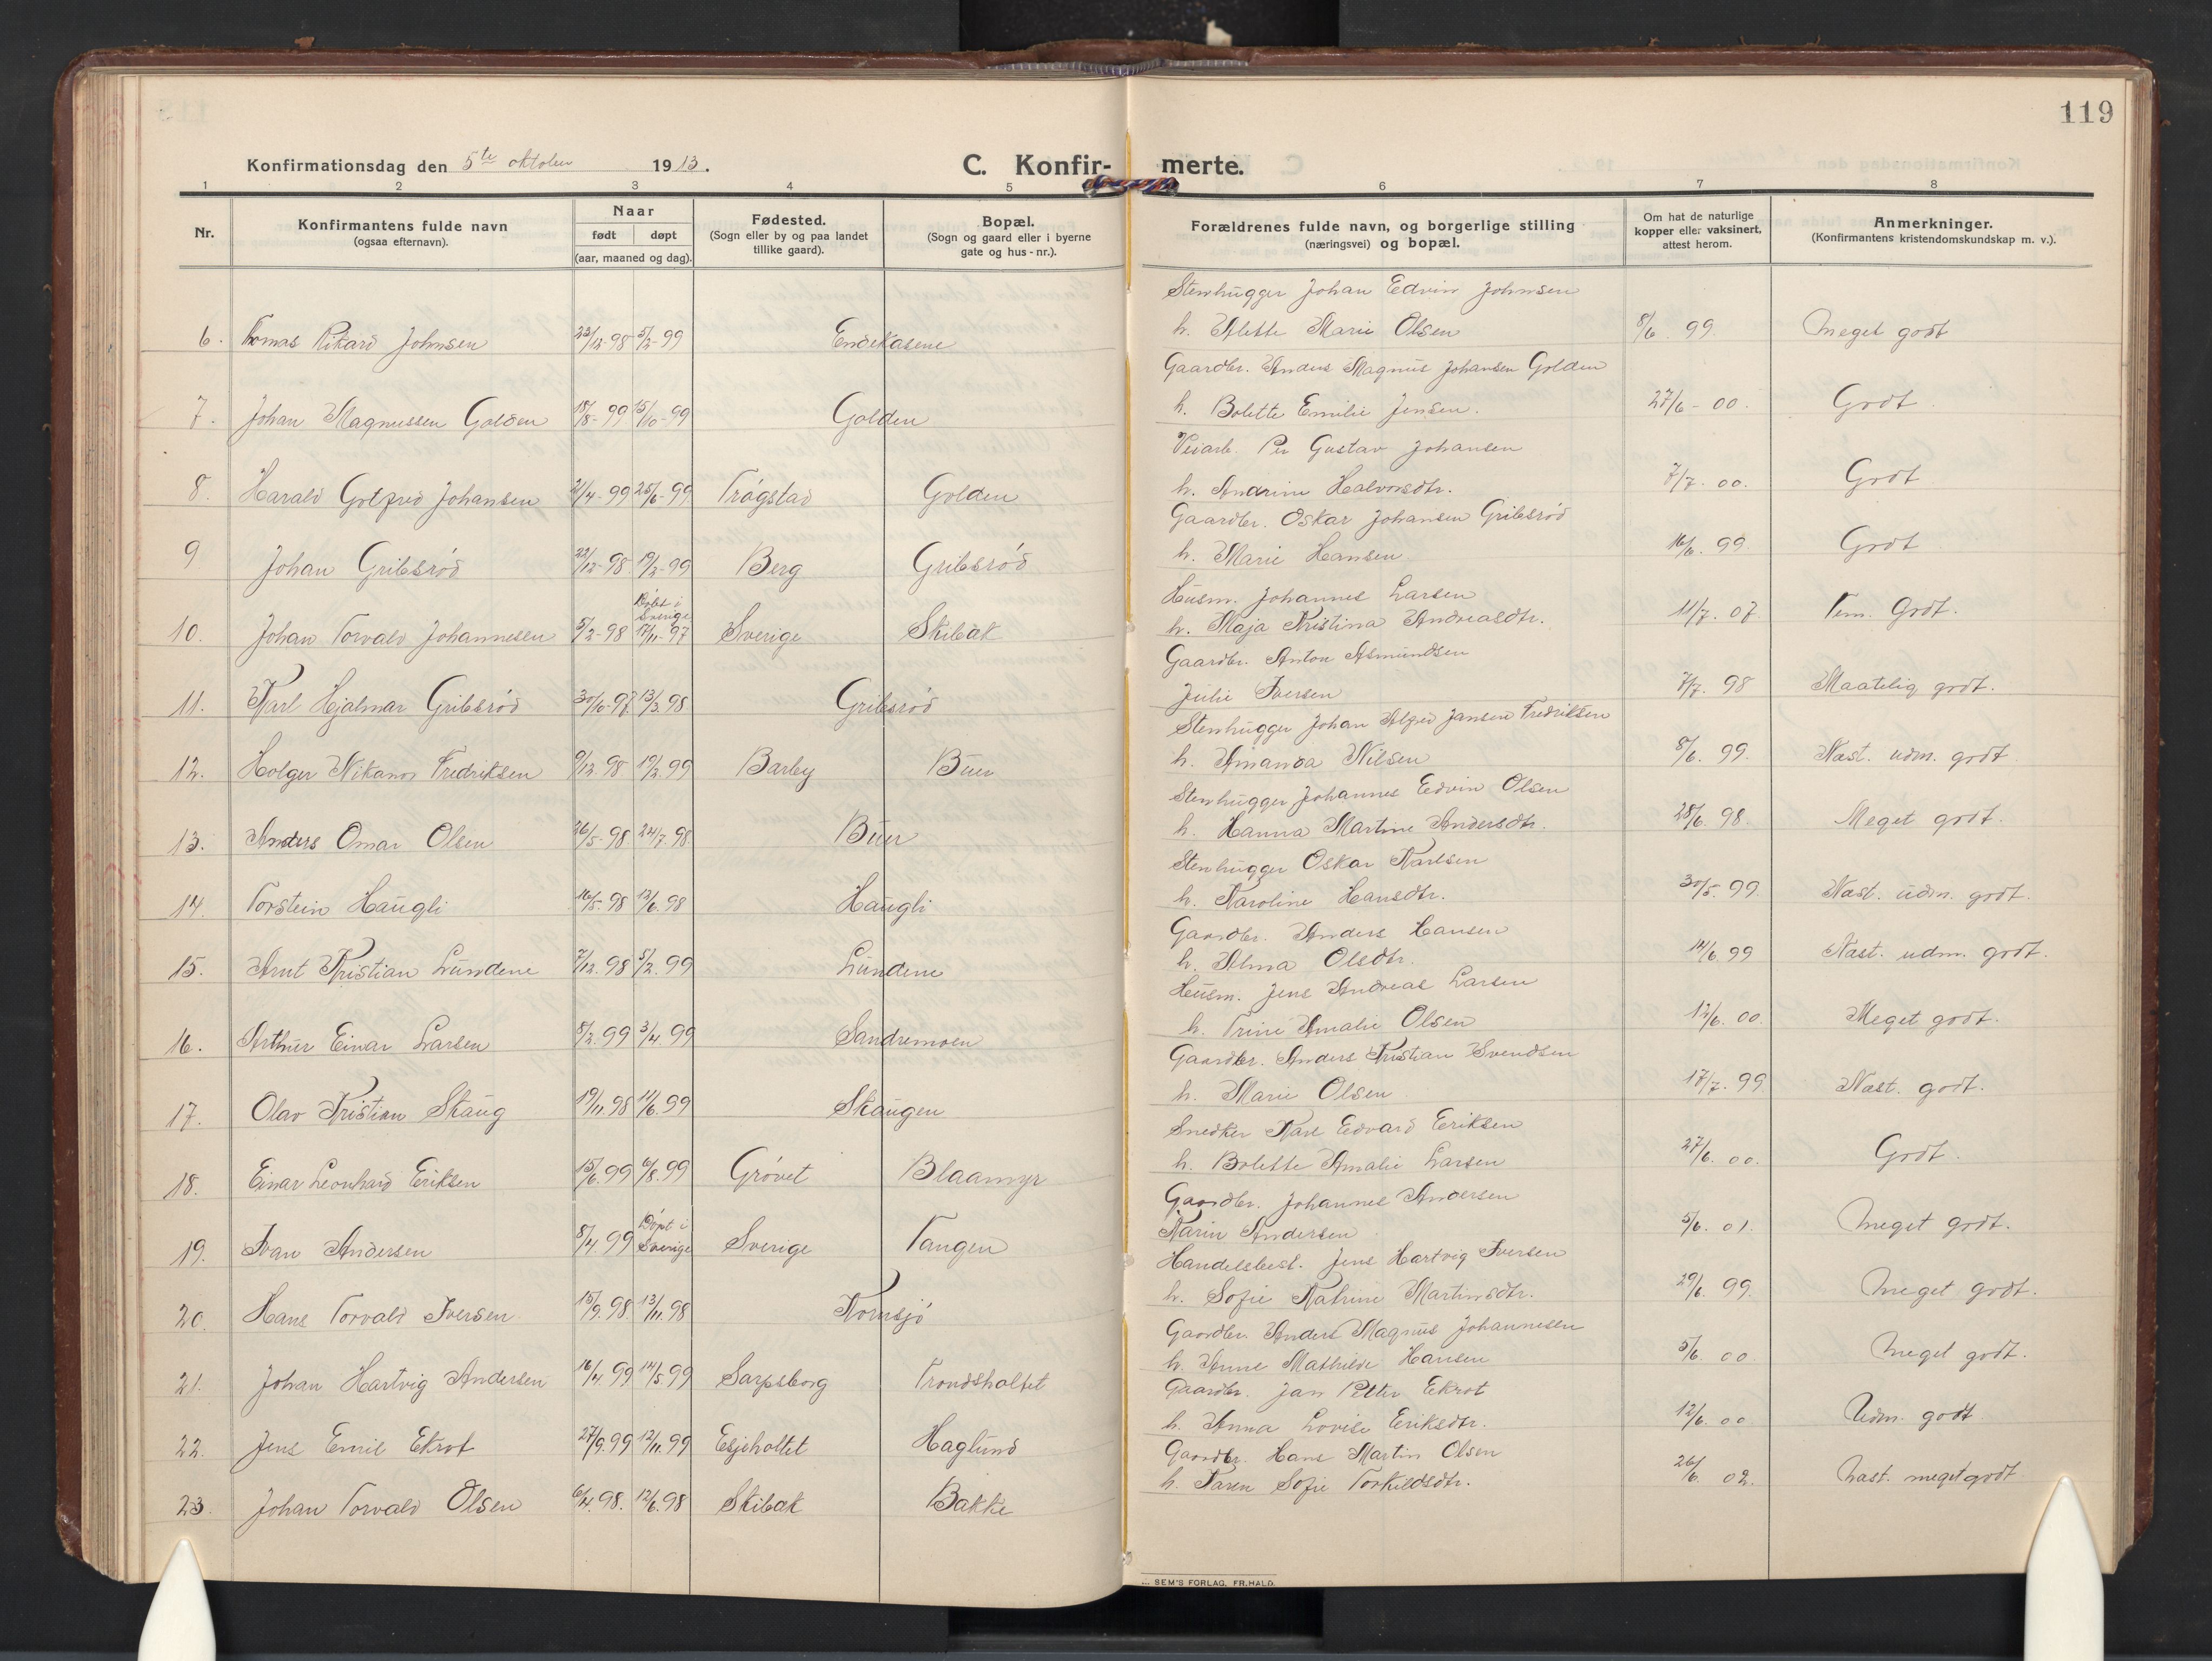 119
Konfirmationsdag den 5te oktober 1913.
C. Konfir- merte.
1 2 3 4 5 6 7 8
Nr.
Konfirmantens fulde navn
(ogsaa efternavn).
Naar
født døpt
(aar, maaned og dag).
Fødested.
(Sogn eller by og paa landet
tillike gaard).
Bopæl.
(Sogn og gaard eller i byerne
gate og hus-nr.).
Forældrenes fulde navn, og borgerlige stilling
(næringsvei) og bopæl.
Om hat de naturlige
kopper eller vaksinert,
attest herom.
Anmerkninger.
(Konfirmantens kristendomskundskap m. v.).
Stenhugger Johan Edvin Johnsen
6. Thomas Rikard Johnsen 23/12-98 5/2-99 Endekasene h. Alette Marie Olsen 8/6 99 Meget godt
Gaardbr. Anders Magnus Johansen Golden
7. Johan Magnussen Golden 18/8-99 15/10-99 Golden h. Bolette Emilie Jensen. 27/6-00. Godt
Veiarb. Per Gustav Johansen
8. Harald Gotfred Johansen 2/4-99 25/6-99 Trøgstad Golden h. Andrine Halvorsdtr. 7/7.00. Godt
Gaardbr. Oskar Johansen Gribsrød
9 Johan Gribsrød 22/12-98 19/2-99 Berg Gribsrød h. Marie Hansen 16/6.99. Godt
Husm. Johannes Larsen
Døbt i
Sverige
10. Johan Torvald Johannesen 5/2-98 17/11-97 Sverige Skibak h. Maja Kristina Andreasdtr. 11/7.07. Tem. Godt.
Gaardbr. Anton Asmundsen
11. Karl Hjalmar Gribsrød 30/10-97 13/3.98 Gribsrød Julie Iversen 7/7.98 Maatelig godt.
Stenhugger Johan Alfred Jansen Fredriksen
12. Holger Nikanor Fredriksen 9/12.98 19/2.99 Barby Buer h. Amanda Nilsen 8/6.99. Næst. udm. godt
Stenhugger Johannes Edvin Olsen
13. Anders Omar Olsen 26/5-98 24/7.98. Buer h. Hanna Martine Andersdtr. 28/6.98. Meget godt.
Stenhugger Oskar Karlsen
14. Torstein Haugli 16/5-98 12/6.98 Haugli h. Karoline Hansdtr. 30/5.99 Næst. udm. godt.
Gaardbr. Anders Hansen
15. Arnt Kristian Lundene 7/12.98 5/2.99 Lundene h. Alma Olsdtr. 14/6.99 Næst. udm. godt.
Husm. Jens Andreas Larsen
16. Arthur Einar Larsen 8/2.99 3/4.99 Sandremoen h. Trine Amalie Olsen 12/6.00. Meget godt.
Gaardbr. Anders Kristian Svendsen
17. Olav Kristian Skaug 19/11.98 14/6.99 Skaugen h. Marie Olsen 17/7.99 Næst. godt.
Snedker Karl Edvard Eriksen
18. Einar Leonhard Eriksen 15/6.99 6/8.99 Grøvet Blaamyr h. Bolette Amalie Larsen 27/6.00. Godt.
Gaardbr. Johannes Andersen
19. Ivan Andersen 8/4.99 Døpt i
Sverige Sverige Tangen Karin Andersen 5/6.01. Meget godt.
Handelsbest. Jens Hartvig Iversen
20. Hans Torvald Iversen 15/9.98 13/11.98 Kornsjø h. Sofie Katrine Martinsdtr. 29/6.99. Meget godt.
Gaardbr. Anders Magnus Johannesen
21. Johan Hartvig Andersen 16/4.99 14/5.99 Sarpsborg Trondsholtet h. Anne Mathilde Hansen 5/6.00 Meget godt.
Gaardbr. Jan Petter Ekrot
22. Jens Emil Ekrot 27/9.99 12/11.99 Esjeholtet Haglund h. Anna Lovise Eriksdtr. 12/6.00 Udm. godt
Gaardbr. Hans Martin Olsen
23. Johan Torvald Olsen 6/4.98. 12/6.98 Skibak Bakke h. Karen Sofie Torkildsdtr. 26/6 02. Næst. meget godt
SEM'S FORLAG, FR.HALD.